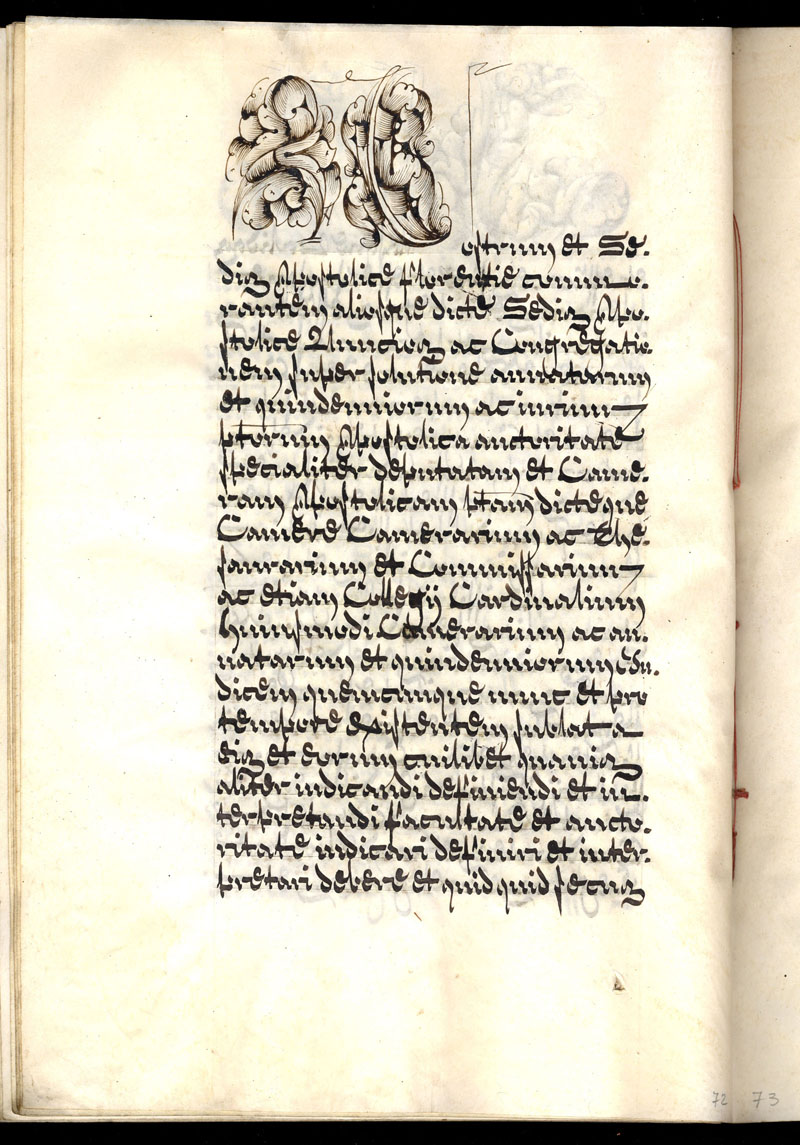 ostrum et Se.
dis Apostolice Florentie commo.
rantem aliosque dicte Sedis Apo.
stolice Nuncios ac Congregatio.
nem super solutione annatarum
et quindenniorum ac iurium
ptorum Apostolica auctoritate
specialiter deputatam et Came.
ram Apostolicam ptam dicteque
Camere Camerarium ac The.
saurarium et Commissarium
ac etiam Collegij Cardinalium
huiusmodi Camerarium ac an.
natarum et quindenniorum Iu.
dicem quemcunque nunc et pro
tempore existentem sublata
eis et eorum cuilibet quavis
aliter iudicandi definiendi et in.
terpretandi facultate et aucto.
ritate iudicari definiri et inter.
pretari debere et quidquid secus
72 73